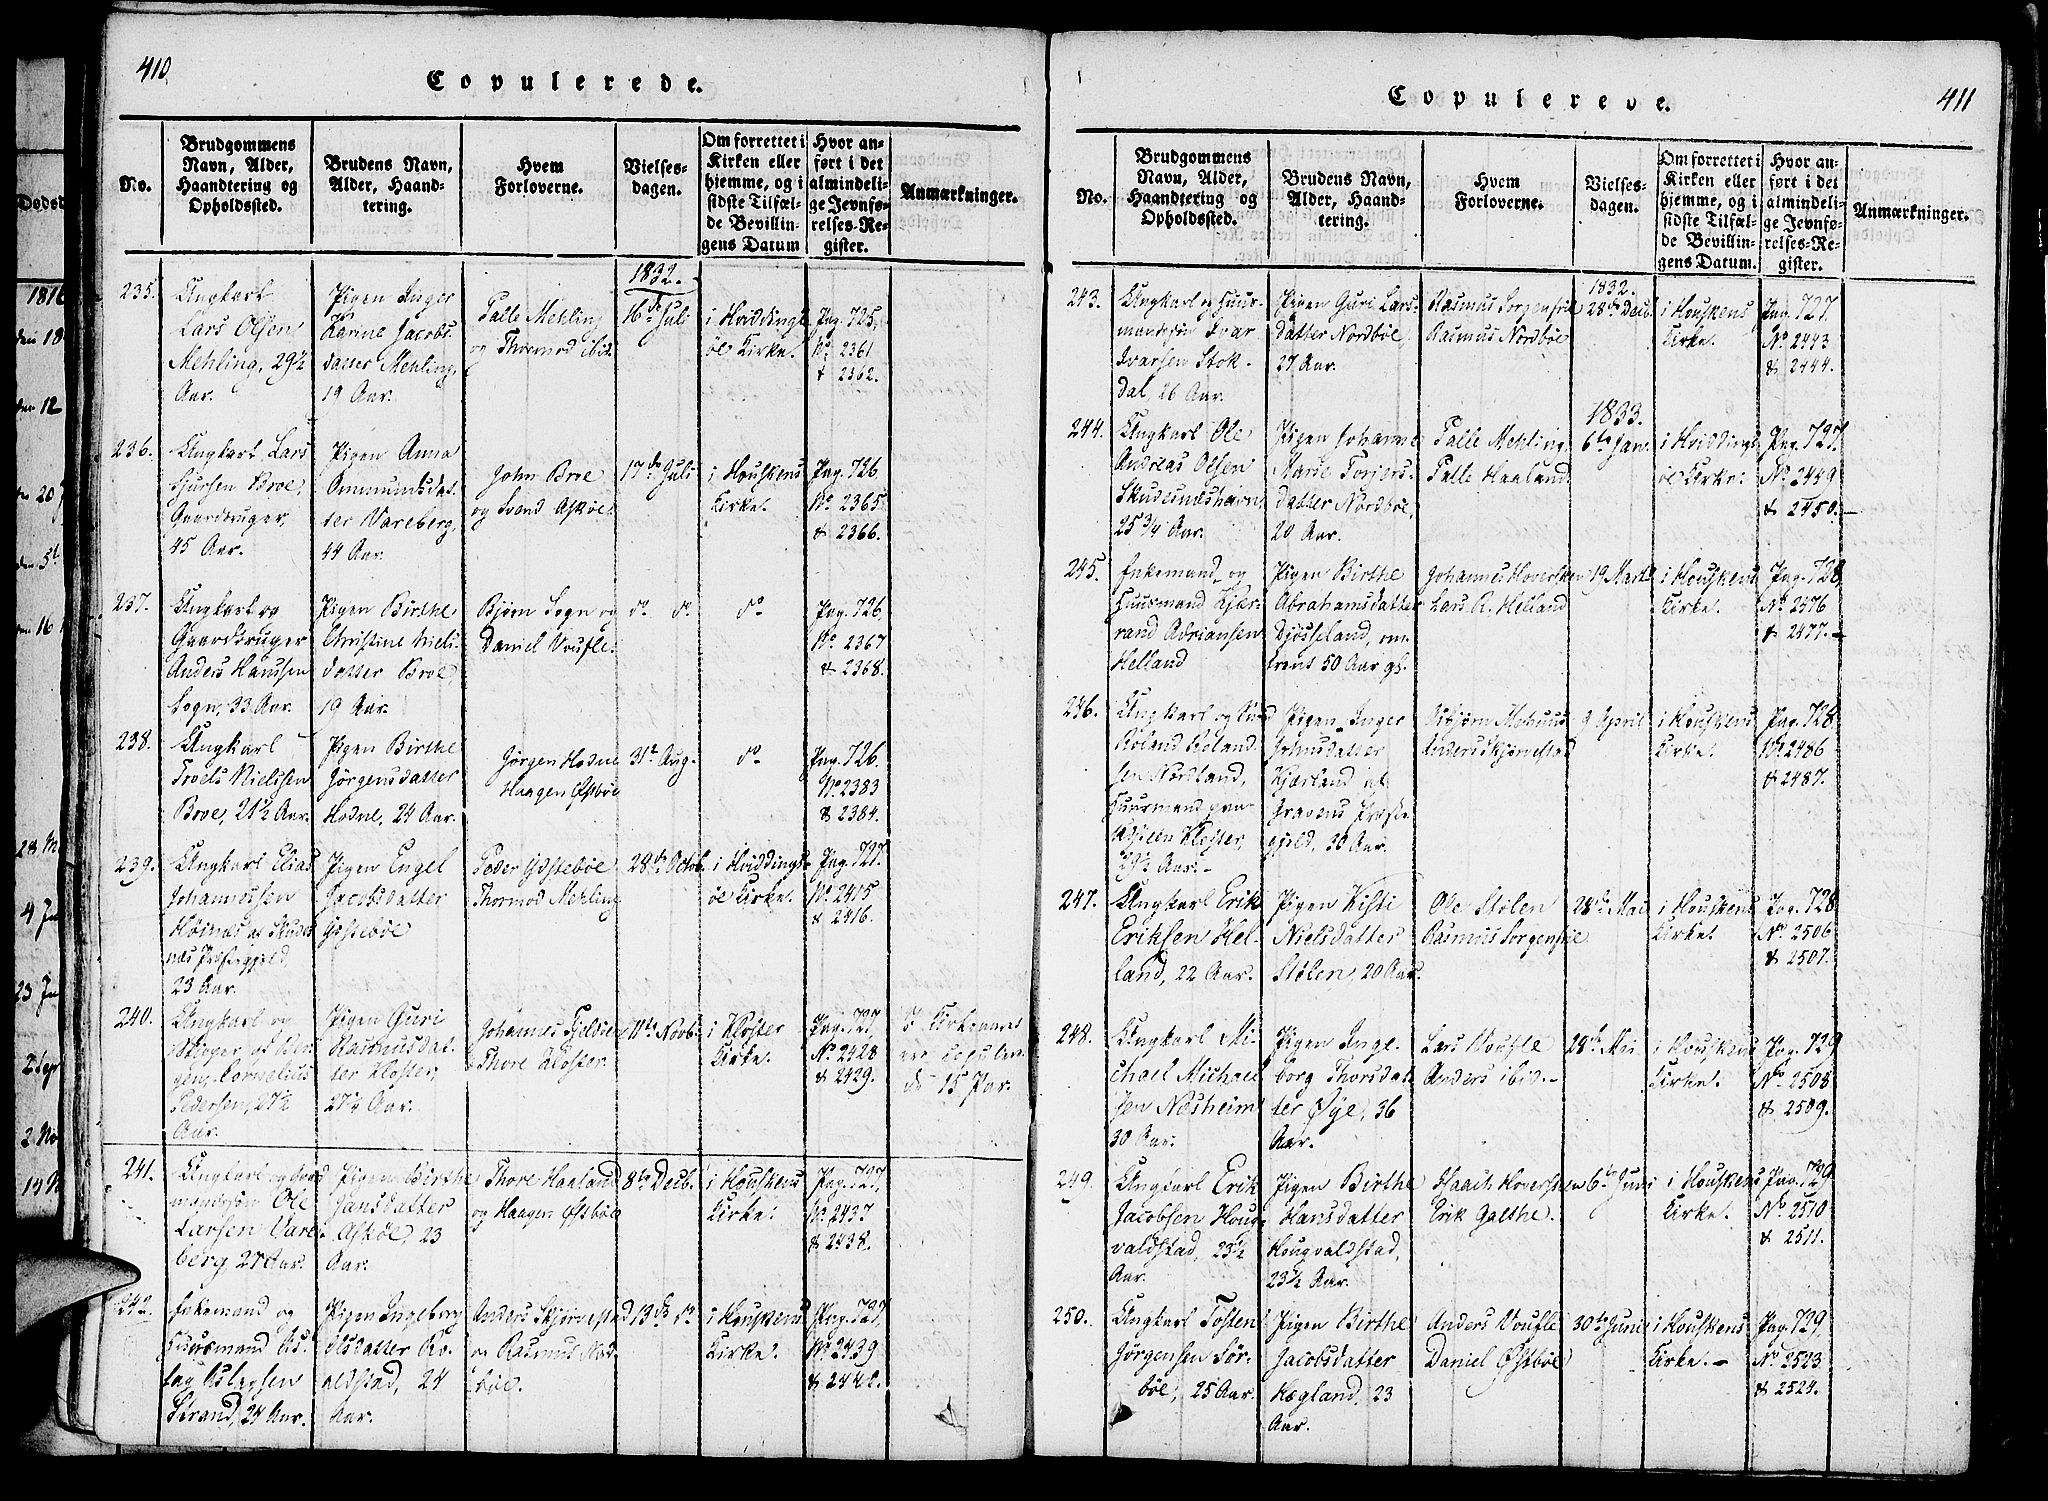 410
Copulerede.
No.
Brudgommens
Navn, Alder,
Haandtering og
Opholdssted.
Brudens Navn,
Alder, Haand-
tering.
Hvem
Forloverne.
Vielses-
dagen.
Om forrettet i
Kirken eller
hjemme, og i
sidste Tilfæl-
de Bevillin-
gens Datum
Hvor an-
ført i det
almindeli-
ge Jevnfø-
relses-Re-
gister.
Anmærkninger.
1832.
235.
Ungkarl
Lars Olsen
Mehling, 29½
Aar.
Pigen Inger
Karine Jacobs
datter Mehling,
19 Aar.
Palle Mehling
og Thormod ibid.
16de Juli
i Hviddings
øe Kirke.
Pag. 725,
No. 2361
& 2362.
236.
Ungkarl Lars
Sjursen Broe,
Gaardbruger,
45 Aar.
Pigen Anna
Ommundsdat
ter Vareberg,
44 Aar.
John Broe
og Svend Askøe
17de Juli
i Houskens
Kirke.
Pag. 726
No. 2365
& 2366.
237.
Ungkarl og
Gaardbruger
Anders Hansen
Sogn, 33 Aar.
Pigen Birthe
Christine Niels
datter Broe,
19 Aar.
Bjørn Sogn og
Daniel Voufle.
do do
do
Pag. 726,
No. 2367
& 2368.
238.
Ungkarl
Troels Nielssen
Broe, 21½ Aar.
Pigen Birthe
Jørgensdatter
Hodne, 24 Aar.
Jørgen Hodne
Haagen Østbøe
31te Aug.
do
Pag. 726.
No. 2383
& 2384.
239.
Ungkarl Elias
Johannessen
Høines af Skudes
næs Præstegjeld,
23 Aar.
Pigen Engel
Jacobsdatter
Ydstebøe
Peder Ydstebøe
Thormod Mehling
28de Octob.
i Hviddings-
øe Kirke.
Pag. 727.
No. 2415
& 2416.
240.
Ungkarl og
Skipper af Ber
gen, Cornelius
Pedersen, 27½
Aar.
Pigen Guri
Rasmusdat
ter Kloster,
27½ Aar.
Johannes Fjeldsøe
Thore Kloster.
11te Novb.
i Kloster
Kirke.
Pag. 727,
No. 2428
& 2429.
15 Par.
241.
Ungkarl og Gaard
mandssøn Ole
Larsen Vare-
berg, 27 Aar.
Pigen Birthe
Jansdatter
Askøe, 23
Aar.
Thore Haaland
og Haagen Østbøe
8de Decb.
i Houskens
Kirke.
Pag. 727,
No. 2437
& 2438.
242.
Enkemand og
Huusmand As-
lag Aslagsen
Strand, 24 Aar.
Pigen Ingeborg
Olsdatter Ro-
aldstad, 24
Aar.
Anders Skjørvestad
og Rasmus Nord-
bøe.
13de do
i Houskens
Kirke.
Pag. 727,
No. 2439
& 2440.
411
Copulerede.
No.
Brudgommens
Navn, Alder,
Haandtering og
Opholdssted.
Brudens Navn,
Alder, Haand-
tering.
Hvem
Forloverne.
Vielses-
dagen.
Om forrettet i
Kirken eller
hjemme, og i
sidste Tilfæl-
de Bevillin-
gens Datum.
Hvor an-
ført i det
almindeli-
ge Jevnfø-
relses-Re-
gister.
Anmærkninger.
1832.
243.
Ungkarl og Huus-
mandssøn Ivar
Ivarsen Stok-
dal, 26 Aar.
Pigen Guri Lars-
datter Nordbøe,
27 Aar.
Rasmus Sørgenskie
Rasmus Nordbøe
28de Decb.
i Houskens
Kirke.
Pag. 727
No. 2443
& 2444.
1833.
244.
Ungkarl Ole
Andreas Olsen
Skudesnæshavn,
25 3/4 Aar.
Pigen Johanne
Marie Torjers
datter Nordbøe,
20 Aar.
Palle Mehling
Palle Haaland
6te Jan.
i Hviddings
øe Kirke.
Pag. 727.
No. 2449
& 2450.
245.
Enkemand og
Huusmand Kjær-
rand Adriansen
Helland
Pigen Birthe
Abrahamsdatter
Djøsseland, om-
trent 50 Aar gl.
Johannes Hoversken
Lars R. Helland
19 Marts
i Houskens
Kirke.
Pag. 728,
No. 2476
& 2477.
246.
Ungkarl og
Roland Roland-
sen Nordland,
Huusmand paa
Utsteen Kloster,
29½ Aar.
Pigen Inger
Johnsdatter
Kjærland af
Gravens Præste
gjeld, 30 Aar.
Asbjørn Mehuus
Anders Skjørvestad
9 April
i Houskens
Kirke.
Pag. 728
No. 2486
& 2487.
247.
Ungkarl Erik
Eriksen Hel-
land, 22 Aar.
Pigen Kisti
Nielsdatter
Stølen, 20 Aar.
Ole Stølen
Rasmus Sørgenskie
28de Mai
i Houskens
Kirke.
Pag. 728
No. 2506
& 2507.
248.
Ungkarl Mi-
chael Michael
sen Næsheim
30 Aar.
Pigen Inge-
borg Thorsdat
ter Øye, 36
Aar.
Lars Voufle
Anders ibid.
28de Mai
i Houskens
Kirke.
Pag. 729
No. 2508
& 2509.
249.
Ungkarl Erik
Jacobsen Houg-
valdstad, 23½
Aar.
Pigen Birthe
Hansdatter
Hougvaldstad,
23½ Aar.
Isaach Hoversteen
Erik Galthe.
6te Juni
i Houskens
Kirke.
Pag. 729
No. 2510
& 2511.
250.
Ungkarl Tosten
Jørgensen Sør-
bøe, 25 Aar.
Pigen Birthe
Jacobsdatter
Hegland, 23
Aar.
Anders Voufle
Daniel Østbøe
30te Juni
i Houskens
Kirke.
Pag. 729,
No. 2523
& 2524.